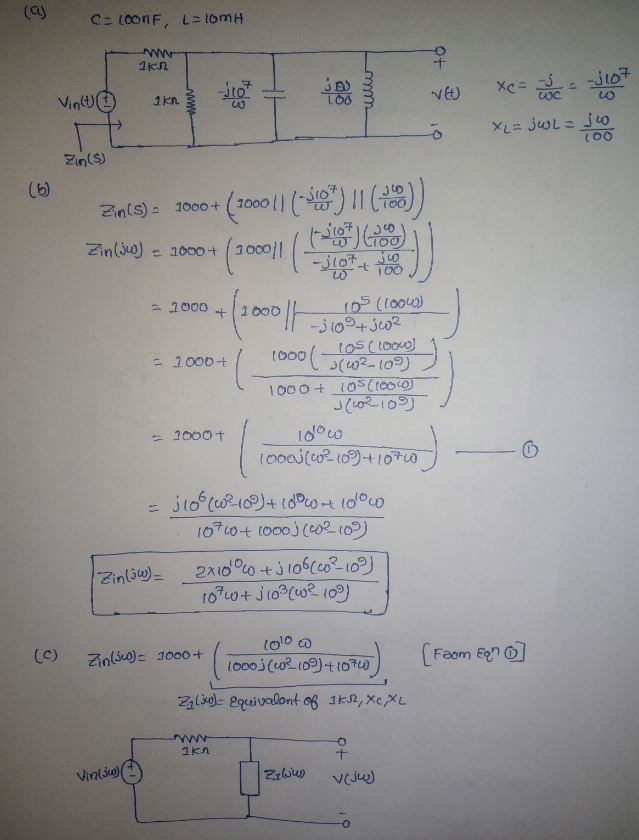 (a) C = 100nF, L = 10mH
1KΩ
Vin(t) 1KΩ -j10^7/ω jω/100 v(t)
+
-
Zin(s)
Xc = -j/ωC = -j10^7/ω
XL = jωL = jω/100
(b) Zin(s) = 1000 + (1000 || (-j10^7/ω) || (jω/100))
Zin(jω) = 1000 + (1000 || ((-j10^7/ω)(jω/100) / (-j10^7/ω + jω/100)))
= 1000 + (1000 || 10^5(100ω) / (-j10^9 + jω^2))
= 1000 + (1000(10^5(100ω) / j(ω^2-10^9)) / (1000 + 10^5(100ω) / j(ω^2-10^9)))
= 1000 + (10^10 ω / (1000j(ω^2-10^9) + 10^7ω)) — ①
= (j10^6(ω^2-10^9) + 10^10ω + 10^10ω) / (10^7ω + 1000j(ω^2-10^9))
Zin(jω) = (2x10^10ω + j10^6(ω^2-10^9)) / (10^7ω + j10^3(ω^2-10^9))
(c) Zin(jω) = 1000 + (10^10 ω / (1000j(ω^2-10^9) + 10^7ω)) [From Eqn ①]
Z1(jω) = Equivalent of 1KΩ, Xc, XL
1KΩ
Vin(jω) Z1(jω) V(jω)
+
-